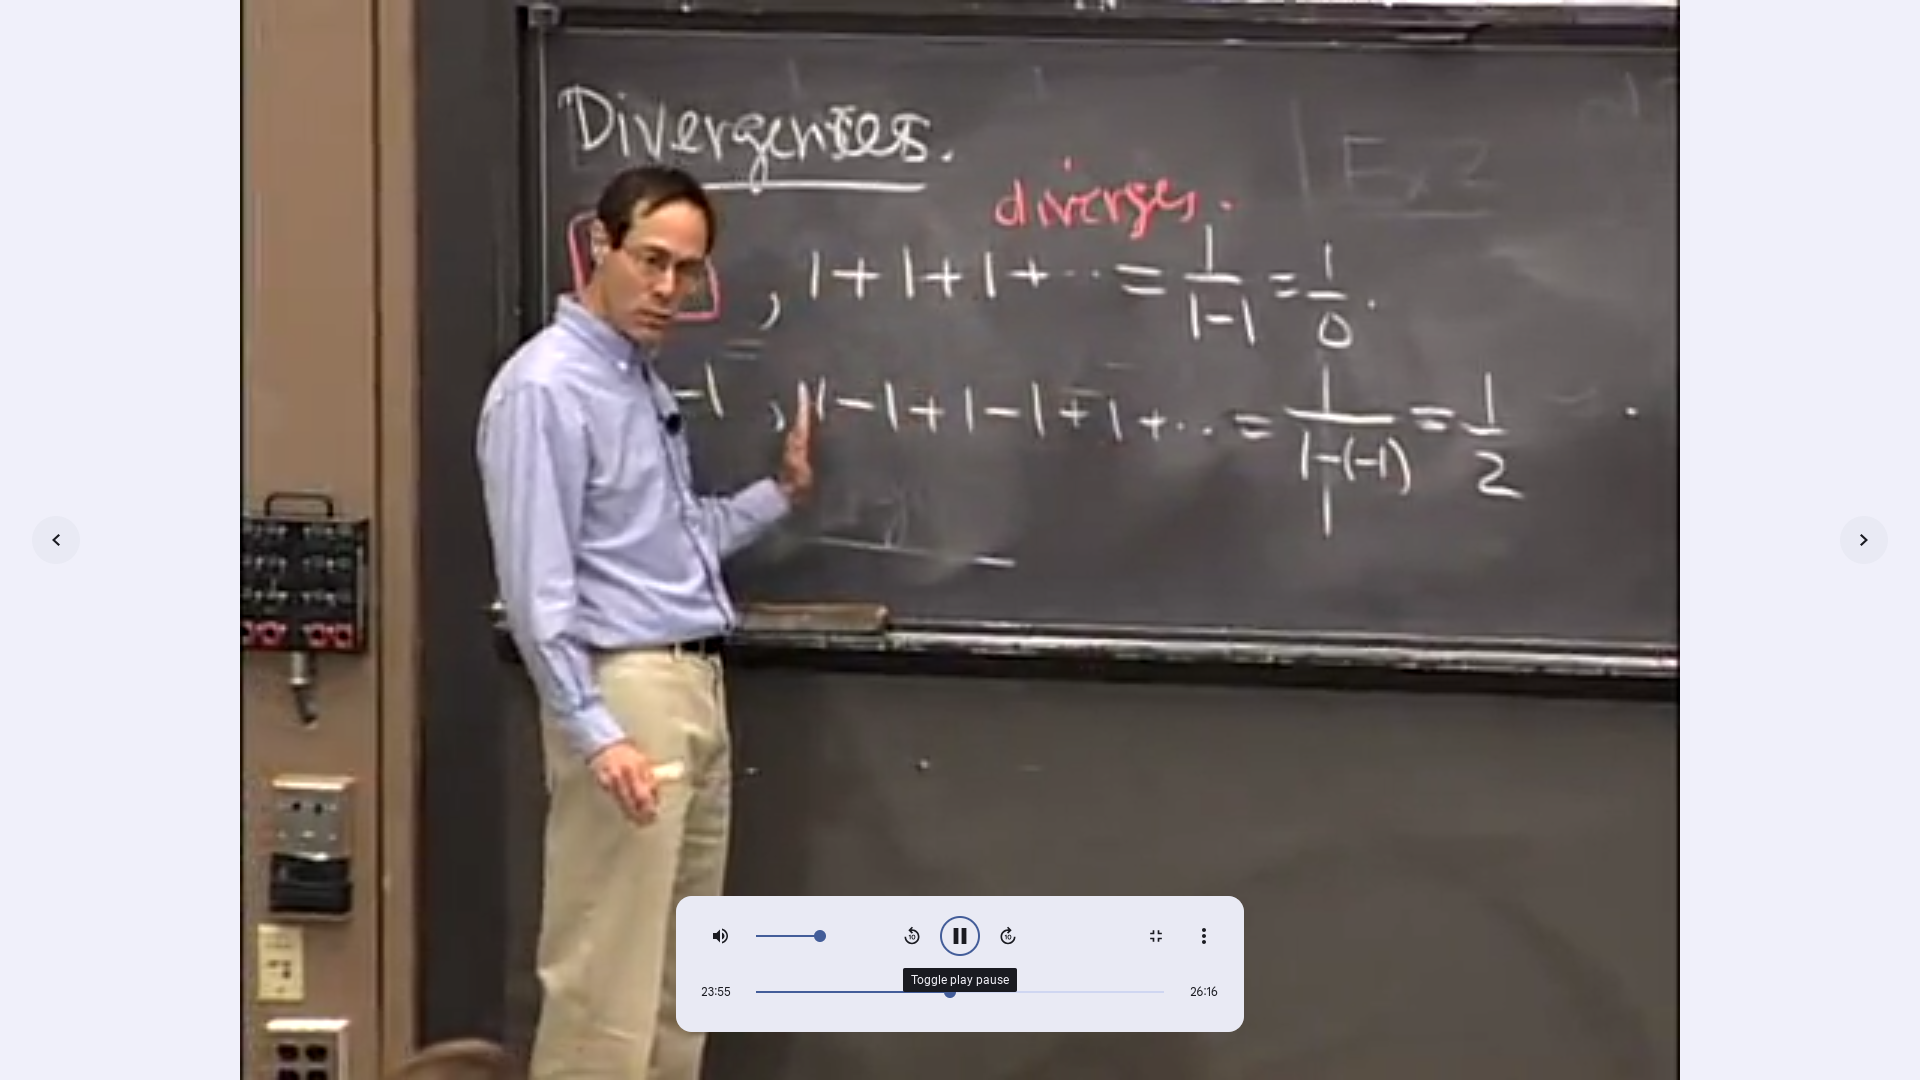 Divergences.
diverges.
, 1 + 1 + 1 + ··· = 1/(1-1) = 1/0.
-1 , 1 - 1 + 1 - 1 + 1 + ··· = 1/(1-(-1)) = 1/2
Ex 2
10
10
Toggle play pause
23:55
26:16